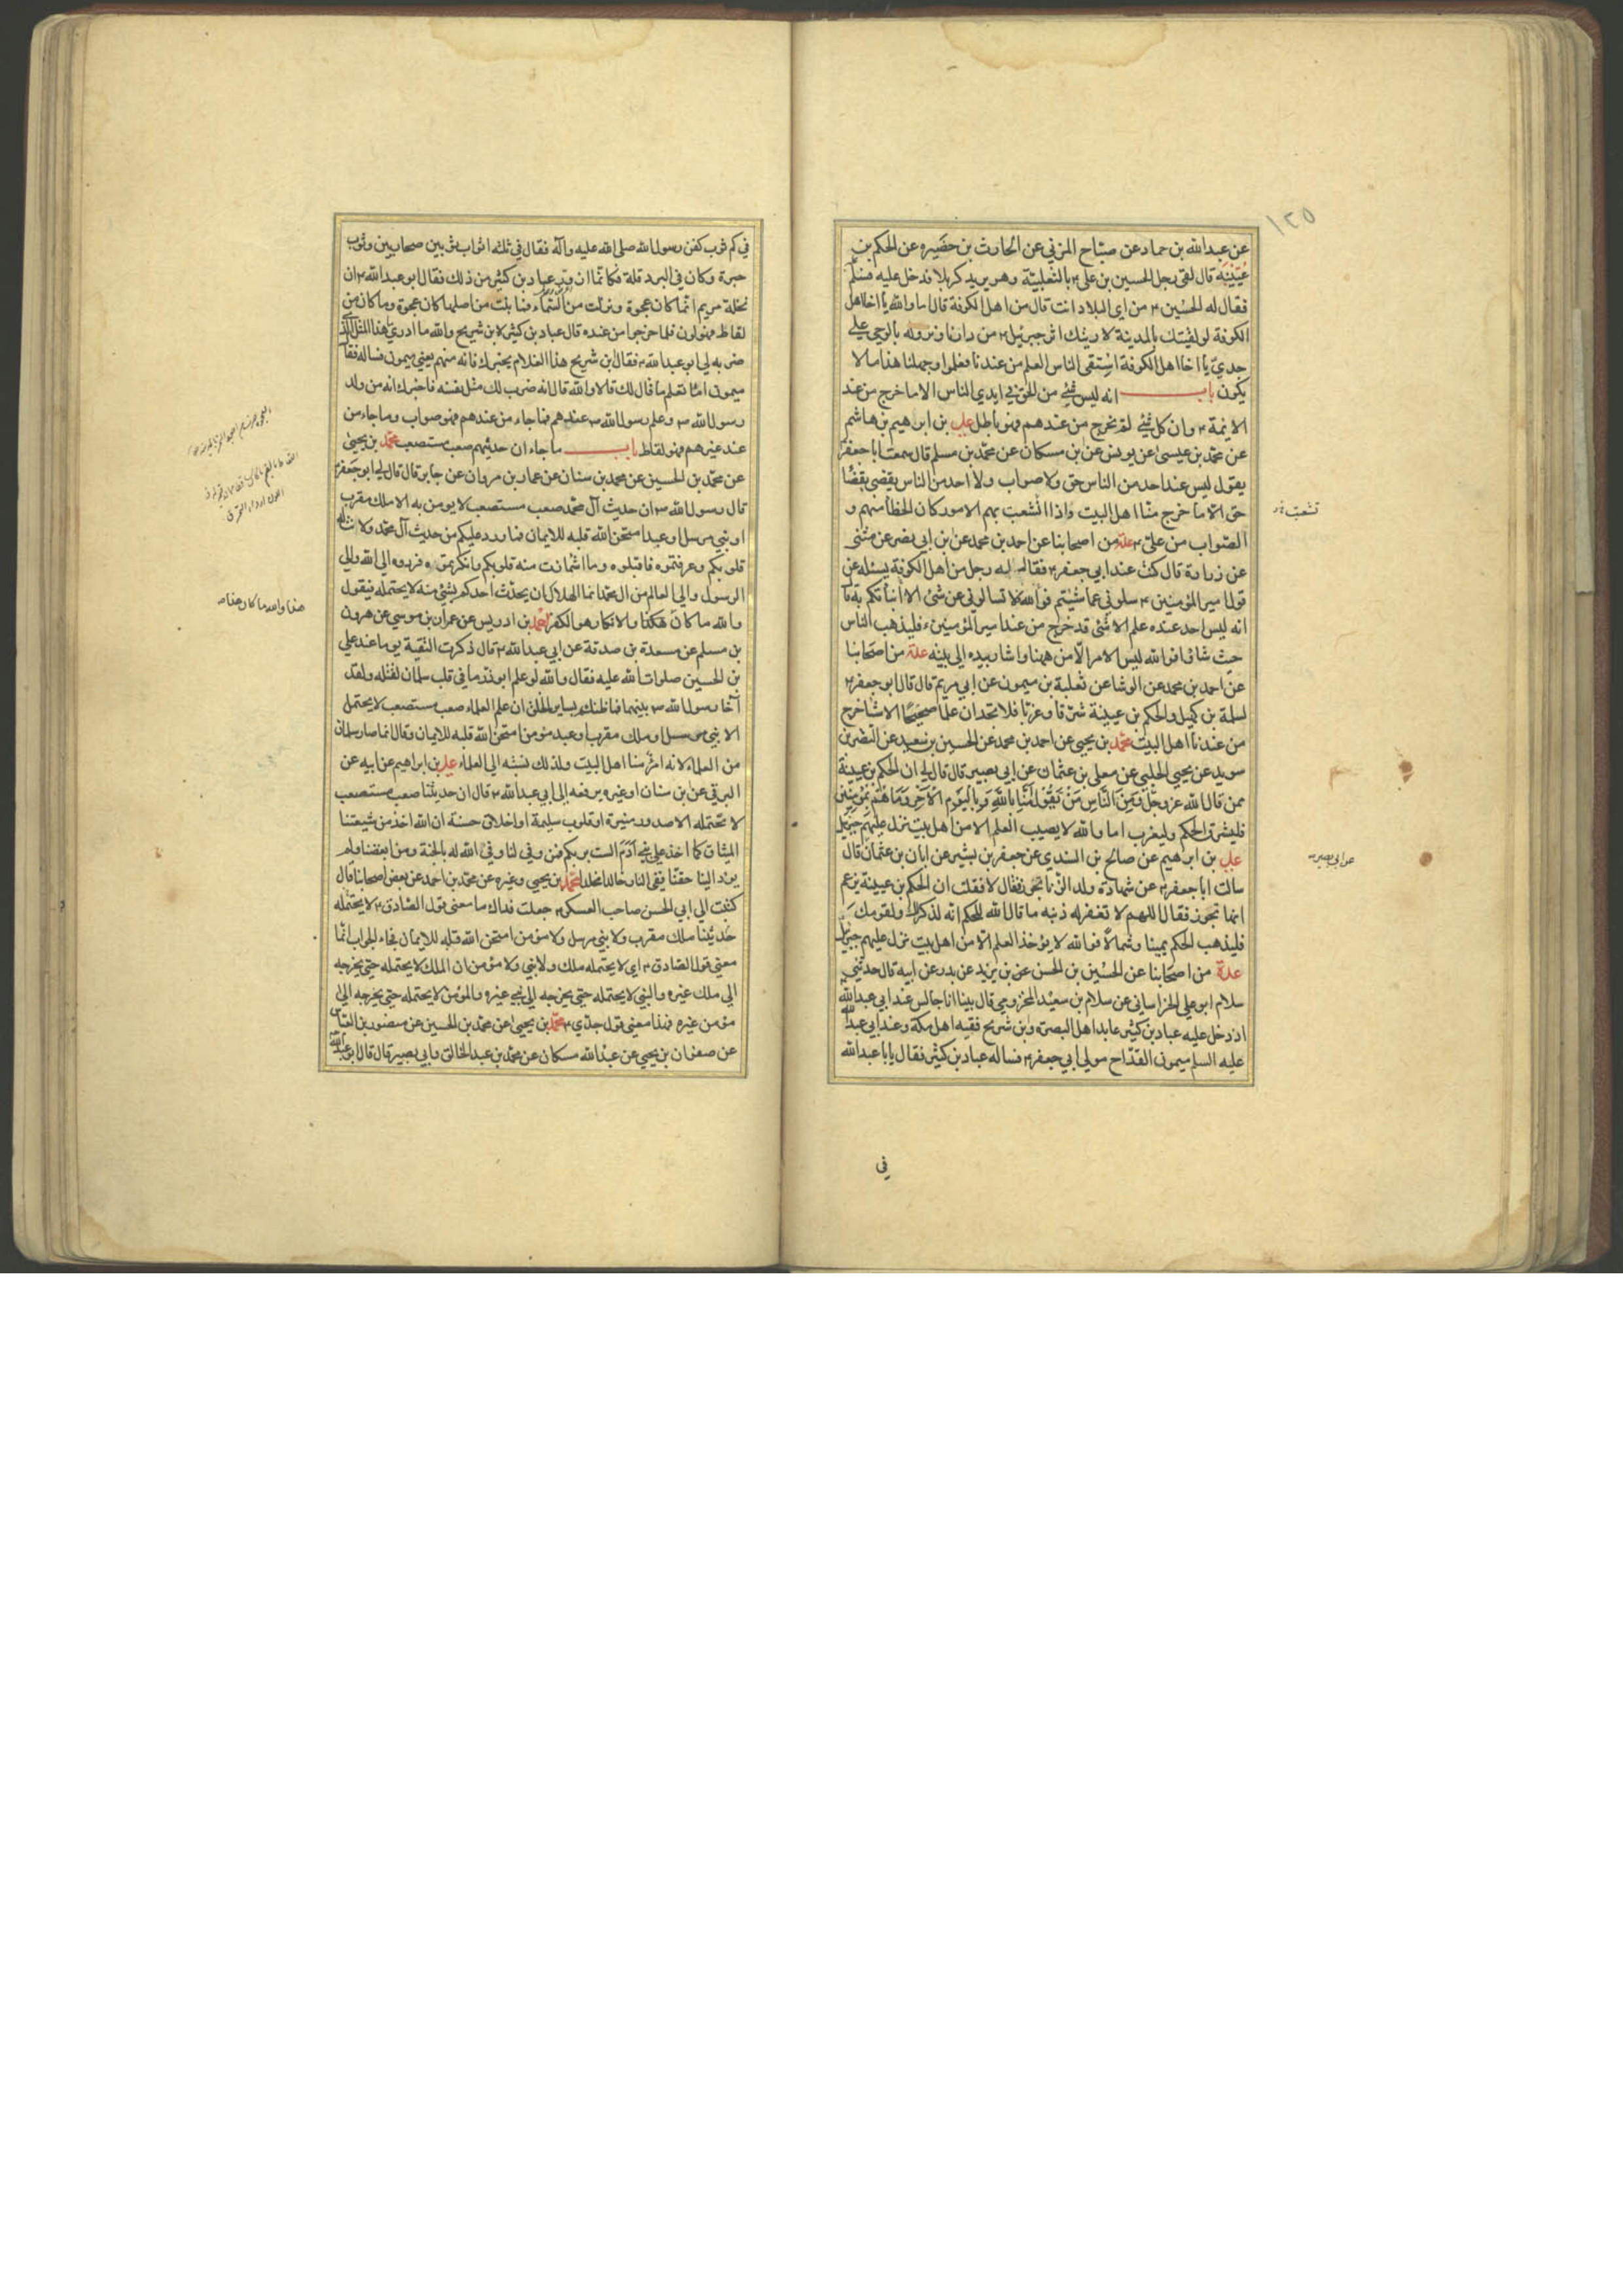 ١٢٥
عن عبدالله بن حماد عن صباح المزني عن الحارث بن حضيره عن الحكم بن
عُيَيْنَة قال لقى رجل الحسين بن علي ۴ بالثعلبية وهو يريد كربلا فدخل عليه فسلّم
فقال له الحُسين ۴ من اي البلاد انت قال من اهل الكوفة قال اما والله يا اخا اهل
الكوفة لو لقيتك بالمدينة لاريتك اثر جبرئيل ۴ من دارنا ونزوله بالوحي على
جدي يا اخا اهل الكوفة استقى الناس العلم من عندنا فعلموا وجهلنا هذا ما لا
يكون باب انه ليس شئ من الحق في ايدي الناس الا ما خرج من عند
الائمة ۴ وان كل شئ لم يخرج من عندهم فهو باطل علي بن ابراهيم بن هاشم
عن محمّد بن عيسى عن يونس عن بن مسكان عن محمّد بن مسلم قال سمعت ابا جعفر ۴
يقول ليس عند احد من الناس حق ولا صواب ولا احد من الناس يقضى بقضًا
حق الّا ما خرج منّا اهل البيت واذا انشعبت بهم الامور كان الخطأ منهم و
تشعبت
الصّواب من علي ۴ عدة من اصحابنا عن احمد بن محمد عن بن ابى نصر عن مثنى
عن زرارة قال كنت عند ابي جعفر ۴ فقال له رجل من اهل الكوفة يسئله عن
قول امير المؤمنين ۴ سلوني عما شئتم فوالله لا تسالوني عن شئ الا أنبأتكم به قا
انه ليس احد عنده علم الا شئ قد خرج من عند امير المؤمنين ۴ فليذهب الناس
حيث شاؤا فوالله ليس الامر الّا من ههنا واشار بيده الى بيته عدة من اصحابنا
عن احمد بن محمد عن الوشا عن ثعلبة بن ميمون عن ابي مريم قال قال ابو جعفر ۴
لسلمة بن كهيل والحكم بن عيينة شرّقا وغرّبا فلا تجدان علما صحيحًا الا شيا خرج
من عندنا اهل البيت محمّد بن يحيى عن احمد بن محمد عن الحسين بن سعيد عن النضر بن
سويد عن يحيى الحلبي عن معلى بن عثمان عن ابي بصير قال قال لي ان الحكم بن عيينة
ممن قال الله عز وجل وَمِنَ النَّاسِ مَنْ يَقُولُ آمَنَّا بِاللهِ وَبِالْيَوْمِ الْآخِرِ وَمَا هُمْ بِمُؤْمِنِينَ
فليشرق الحكم وليغرب اما والله لا يصيب العلم الا من اهل بيت نزل عليهم جبرئيل
علي بن ابرهيم عن صالح بن السندي عن جعفر بن بشير عن ابان بن عثمان قال
عن ابي بصير
سالت ابا جعفر ۴ عن شهادة ولد الزّنا تجوز فقال لا فقلت ان الحكم بن عيينة يزعم
انها تجوز فقال اللهم لا تغفر له ذنبه ما قال الله للحكم انه لذكر لك ولقومك
فليذهب الحكم يمينا وشمالًا فوالله لا يؤخذ العلم الّا من اهل بيت نزل عليهم جبرئيل
عدة من اصحابنا عن الحسين بن الحسن عن بن يزيد عن بدر عن ابيه قال حدثني
سلام ابو علي الخراساني عن سلام بن سعيد المخزومي قال بينا انا جالس عند ابي عبدالله
اذ دخل عليه عباد بن كثير عابد اهل البصرة وبن شريح فقيه اهل مكة وعند ابي عبدالله
عليه السلم ميمون القدّاح مولى ابي جعفر ۴ فساله عباد بن كثير فقال يا با عبدالله
في
في كم ثوب كفن رسول الله صلى الله عليه وآله فقال في ثلثه اثواب ثوبين صحاريين وثوب
حبرة وكان في البرد قلة فكانّما ازورّ عباد بن كثير من ذلك فقال ابو عبدالله ۴ ان
نخلة مريم انّما كان عجوة ونزلت من السّماء فما نبت من اصلها كان عجوة وما كان من
لقاط فهو لون فلما خرجوا من عنده قال عباد بن كثير لابن شريح والله ما ادري ما هذا المثل الّذى
ضربه لي ابو عبدالله ۴ فقال بن شريح هذا الغلام يخبرك فانه منهم يعني ميمون فساله فقال
ميمون امّا تعلم ما قال لك قال لا والله قال انه ضرب لك مثل نفسه فاخبرك انه من ولد
رسول الله ص وعلم رسول الله ص عندهم فما جاء من عندهم فهو صواب وما جاء من
عند غيرهم فهو لقاط باب ما جاء ان حديثهم صعب مستصعب محمّد بن يحيى
عن محمّد بن الحسين عن محمد بن سنان عن عمار بن مروان عن جابر قال قال لي ابو جعفر ۴
قال رسول الله ص ان حديث آل محمّد صعب مستصعب لا يومن به الا ملك مقرب
او نبي مرسل او عبد امتحن الله قلبه للايمان فما ورد عليكم من حديث آل محمّد ولانت له
قلوبكم وعرفتموه فاقبلوه وما اشمازت منه قلوبكم وانكرتموه فردوه الى الله والى
الرسول والى العالم من ال محمّد انما الهلاك ان يحدّث احدكم بشئ منه لا يحتمله فيقول
هذا والله ما كان هذا
والله ما كان هكذا والانكار هو الكفر احمد بن ادريس عن عمران بن موسى عن هرون
بن مسلم عن مسعدة بن صدقة عن ابي عبدالله ۴ قال ذكرت التّقية يوما عند علي
بن الحسين صلوات الله عليه فقال والله لو علم ابوذر ما في قلب سلمان لقتله ولقد
آخا رسول الله ص بينهما فما ظنكم بساير الخلق ان علم العلماء صعب مستصعب لا يحتمل
الا نبي مرسل او ملك مقرب او عبد مؤمن امتحن الله قلبه للايمان وقال انما صار سلمان
من العلماء لانه امرؤ منا اهل البيت ولذلك نسبته الى العلماء علي بن ابراهيم عن ابيه عن
البرقي عن بن سنان او غيره يرفعه الى ابي عبدالله ۴ قال ان حديثنا صعب مستصعب
لا تحتمله الا صدور منيرة او قلوب سليمة او اخلاق حسنة ان الله اخذ من شيعتنا
الميثاق كما اخذ على بني آدم الست بربكم فمن وفى لنا وفى الله له بالجنة ومن ابغضنا ولم
يرد الينا حقنا ففى النار خالدا مخلدا محمد بن يحيى وغيره عن محمد بن احمد عن بعض اصحابنا قال
كتبت الى ابي الحسن صاحب العسكر ۴ جعلت فداك ما معنى قول الصّادق ۴ لا يحتمله
حديثنا ملك مقرب ولا نبي مرسل ولا مؤمن امتحن الله قلبه للايمان فجاء الجواب انّما
معنى قول الصّادق ۴ اي لا يحتمله ملك ولا نبي ولا مؤمن ان الملك لا يحتمله حتى يخرجه
الى ملك غيره والنبي لا يحتمله حتى يخرجه الى نبي غيره والمؤمن لا يحتمله حتى يخرجه الى
مؤمن غيره فهذا معنى قول جدّي ۴ محمّد بن يحيى عن محمّد بن الحسين عن منصور بن العباس
عن صفوان بن يحيى عن عبدالله مسكان عن محمّد بن عبد الخالق وابي بصير قال قال ابو عبدالله